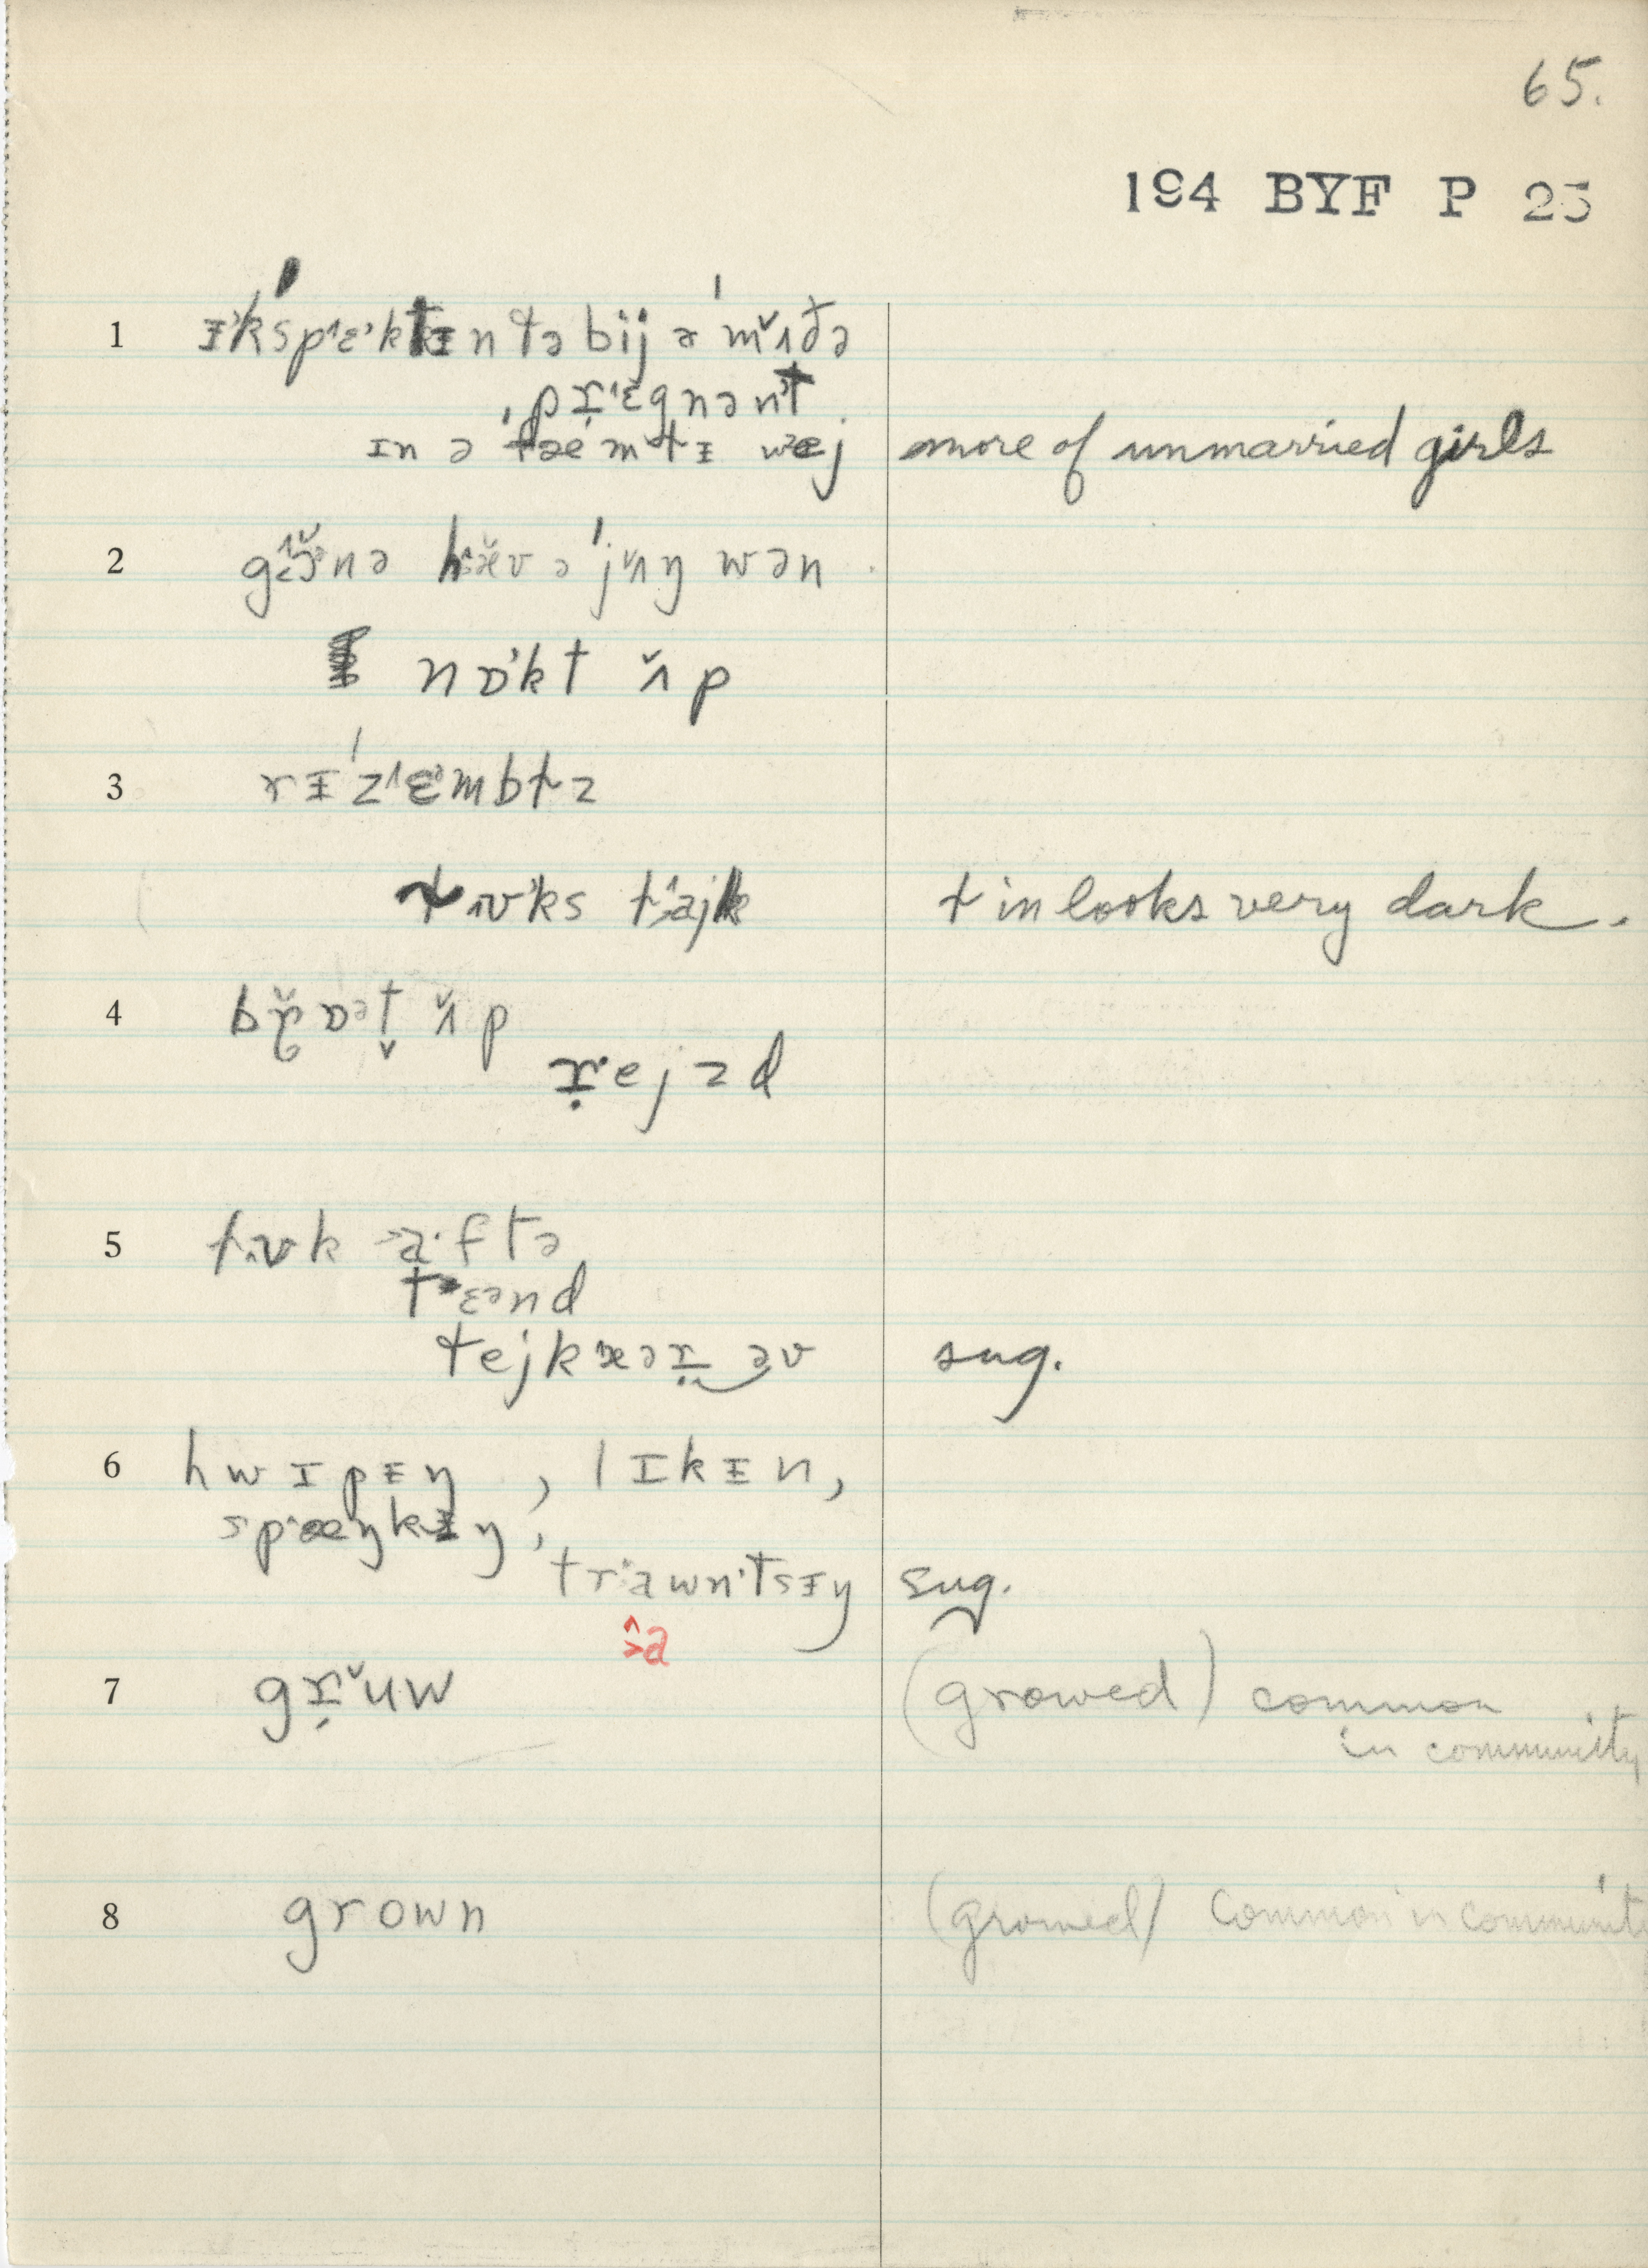 65.
194 BYF P 25
1 ᵻˈkspɛktᵻn tə bij ə mʌðə
prɛgnənt
ɪn ə fæmɫᵻ wej more of unmarried girls
2 gɜnə hæv ə jʌŋ wən
nɒkt ʌp
3 rᵻˈzɛmbɫz
ɫʊks ɫajk ɫ in looks very dark.
4 brɒət ʌp
rejzd
5 ɫʊk aftə
tɛənd
tejkxəɹ əv sug.
6 hwɪpᵻŋ, lɪkᵻn,
spæŋkᵻŋ,
trawntsᵻŋ sug.
a
7 gruw (growed) common
in community
8 grown (growed) common in communit